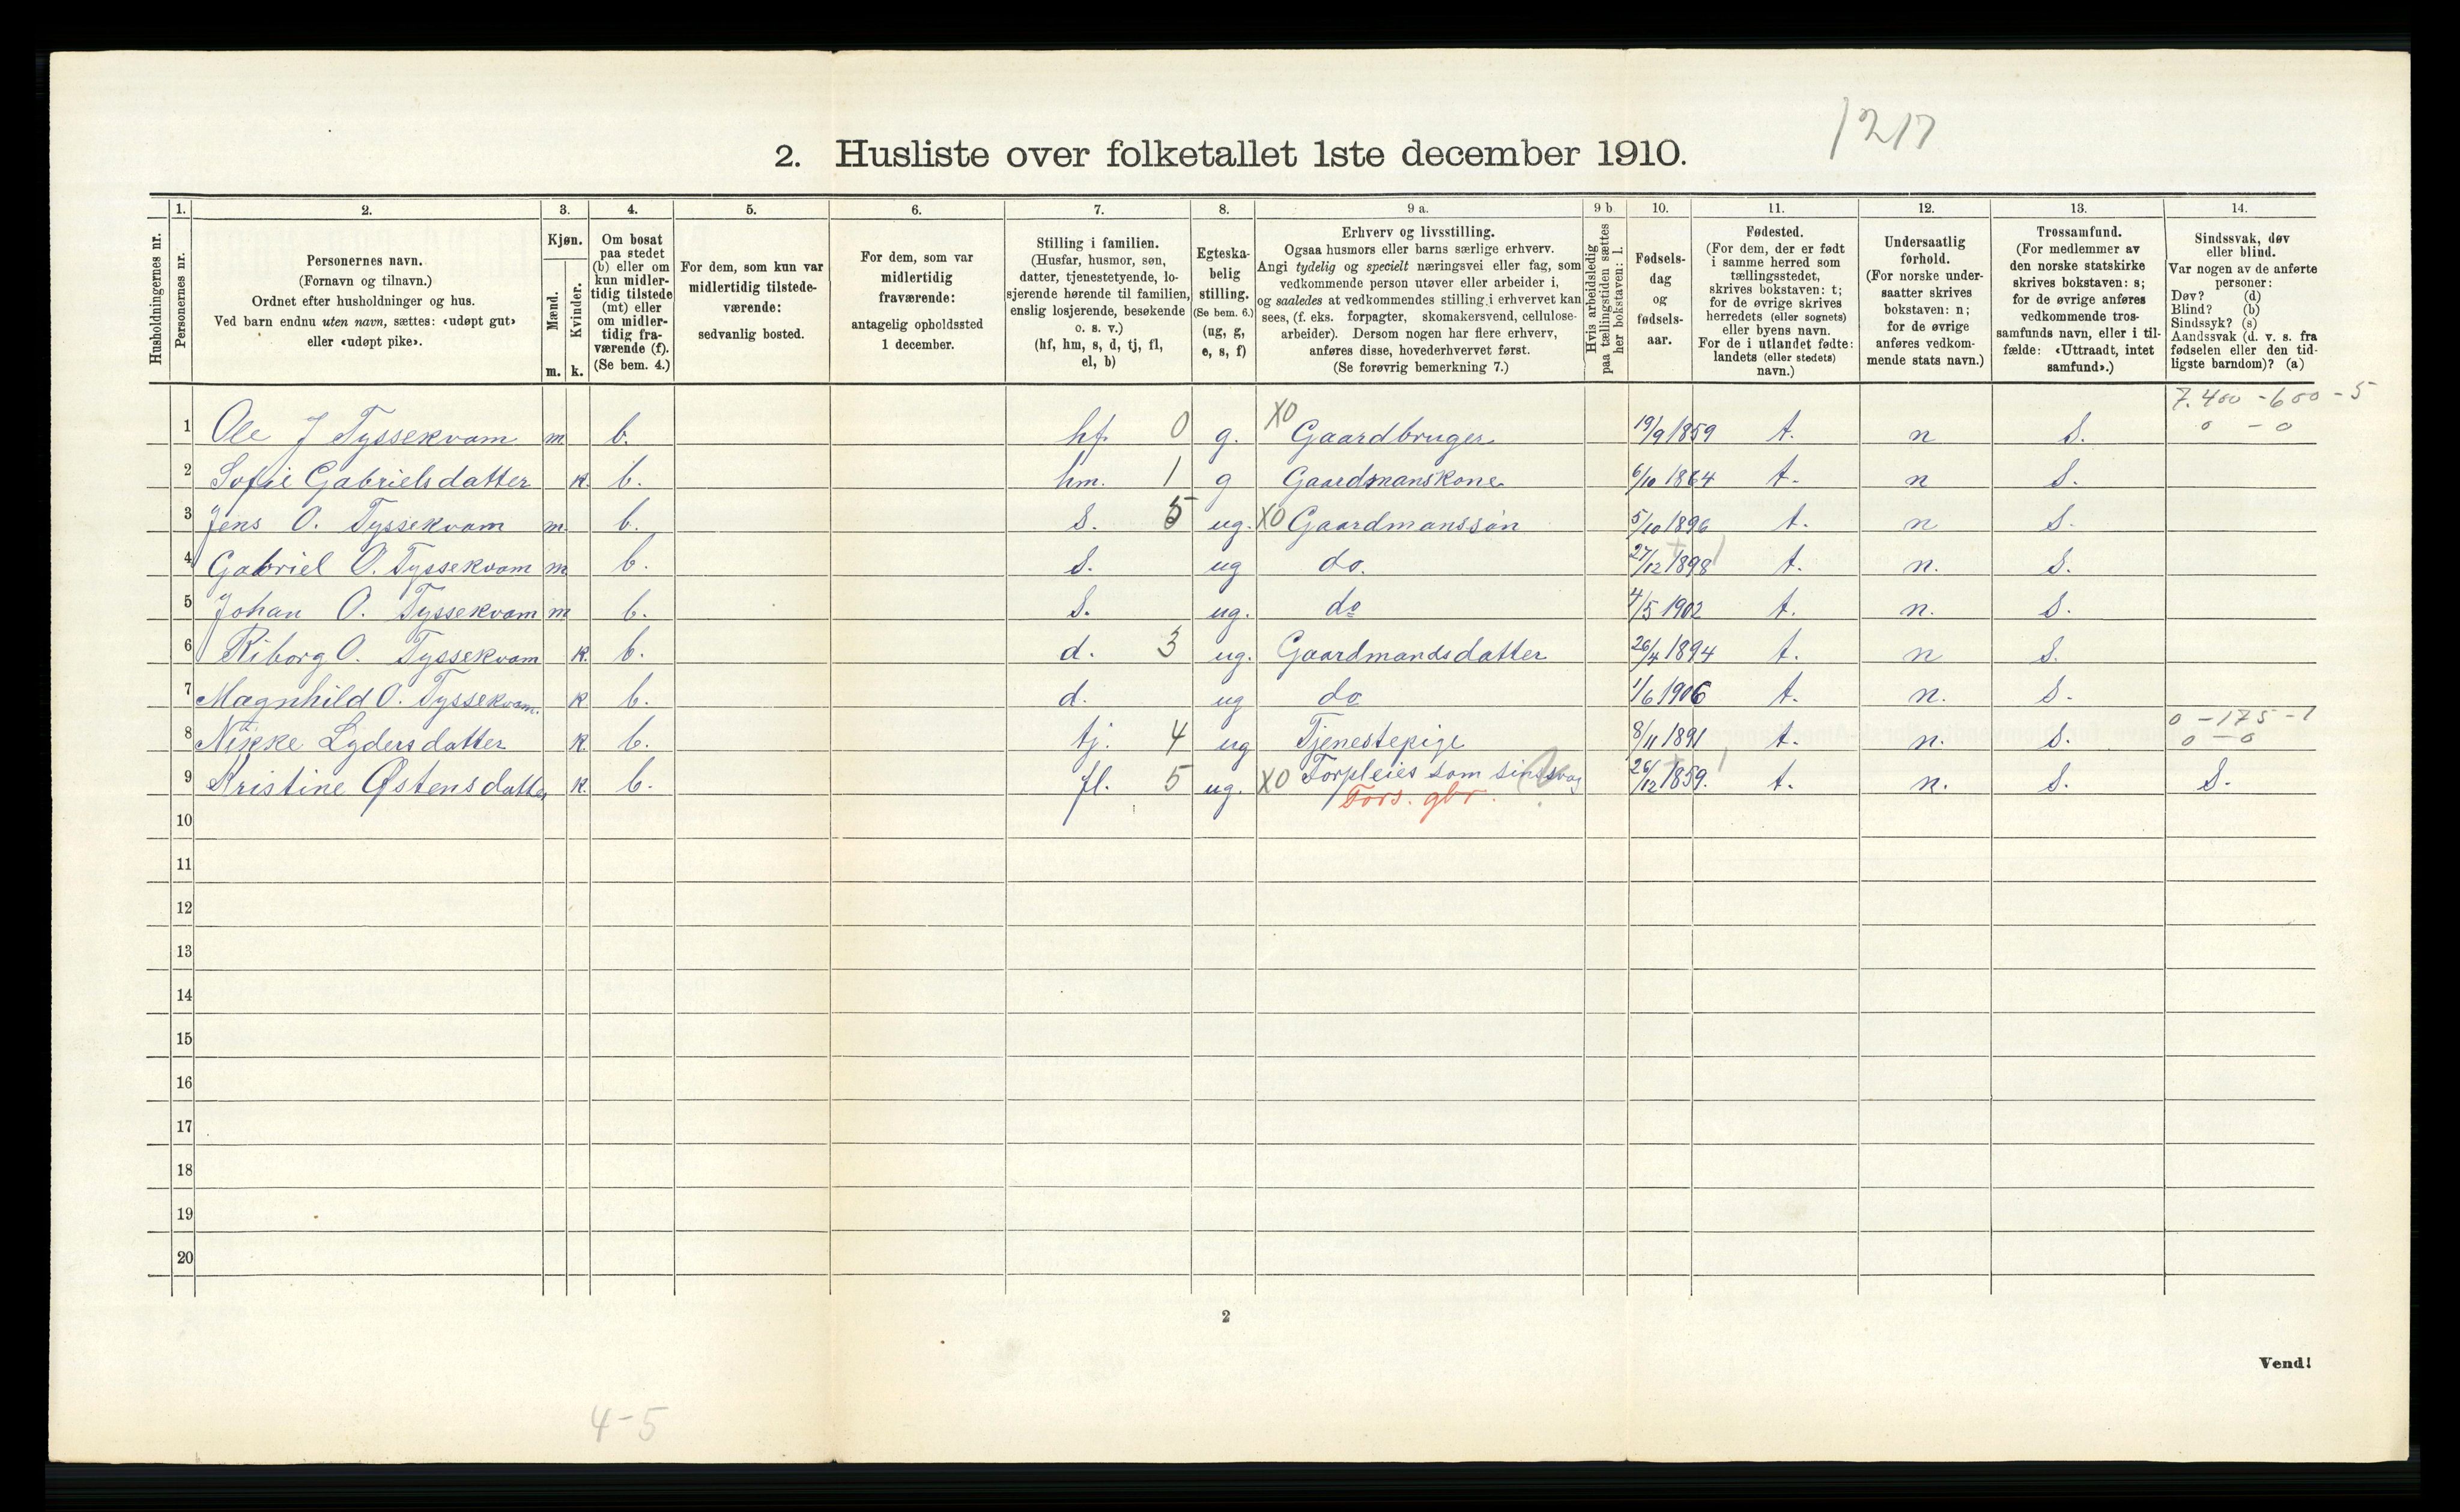 1217
2. Husliste over folketallet 1ste december 1910.
Husholdningernes nr.
1. Personernes nr.
2. Personernes navn.
(Fornavn og tilnavn.)
Ordnet efter husholdninger og hus.
Ved barn endnu uten navn, sættes: «udøpt gut»
eller «udøpt pike».
3. Kjøn.
Mænd. Kvinder.
m. k.
4. Om bosat
paa stedet
(b) eller om
kun midler-
tidig tilstede
(mt) eller
om midler-
tidig fra-
værende (f).
(Se bem. 4.)
5. For dem, som kun var
midlertidig tilstede-
værende:
sedvanlig bosted.
6. For dem, som var
midlertidig
fraværende:
antagelig opholdssted
1 december.
7. Stilling i familien.
(Husfar, husmor, søn,
datter, tjenestetyende, lo-
sjerende hørende til familien,
enslig losjerende, besøkende
o. s. v.)
(hf, hm, s, d, tj, fl,
el, b)
8. Egteska-
belig
stilling.
(Se bem. 6.)
(ug, g,
e, s, f)
9 a. Erhverv og livsstilling.
Ogsaa husmors eller barns særlige erhverv.
Angi tydelig og specielt næringsvei eller fag, som
vedkommende person utøver eller arbeider i,
og saaledes at vedkommendes stilling i erhvervet kan
sees, (f. eks. forpagter, skomakersvend, cellulose-
arbeider). Dersom nogen har flere erhverv,
anføres disse, hovederhvervet først.
(Se forøvrig bemerkning 7.)
9 b Hvis arbeidsledig
paa tællingstiden sættes
her bokstaven: l.
10. Fødsels-
dag
og
fødsels-
aar.
11. Fødested.
(For dem, der er født
i samme herred som
tællingsstedet,
skrives bokstaven: t;
for de øvrige skrives
herredets (eller sognets)
eller byens navn.
For de i utlandet fødte:
landets (eller stedets)
navn.)
12. Undersaatlig
forhold.
(For norske under-
saatter skrives
bokstaven: n;
for de øvrige
anføres vedkom-
mende stats navn.)
13. Trossamfund.
(For medlemmer av
den norske statskirke
skrives bokstaven: s;
for de øvrige anføres
vedkommende tros-
samfunds navn, eller i til-
fælde: «Uttraadt, intet
samfund».)
14. Sindssvak, døv
eller blind.
Var nogen av de anførte
personer:
Døv? (d)
Blind? (b)
Sindssyk? (s)
Aandssvak (d. v. s. fra
fødselen eller den tid-
ligste barndom)? (a)
7.400 - 600 - 5
0 - 0
1 Ole J Tyssekvam m b. hf 0 g. X0 Gaardbruger 19/9 1859 t. n S.
2 Sofie Gabrielsdatter k. b. hm. 1 g Gaardmanskone 6/10 1864 t. n S.
3 Jens O. Tyssekvam m b. S. 5 ug. X0 Gaardmanssøn 5/10 1896 t. n S.
4 Gabriel O. Tyssekvam m b. S. ug do. 27/12 1898 t. n. S.
5 Johan O. Tyssekvam m b. S. ug. do 4/5 1902 t. n. S.
6 Riborg O. Tyssekvam k. b. d. 3 ug. Gaardmandsdatter 26/4 1894 t. n S.
7 Magnhild O. Tyssekvam. k b. d. ug do 1/6 1906 t. n. S.
0 - 175 - 1
8 Nikke Lydersdatter k. b. tj. 4 ug Tjenestepige 8/11 1891 t. n. S. 0 - 0
9 Kristine Østensdatter k. b. fl. 5 ug. X0 Forpleies som sindsvag 26/12 1859. t. n. S. S.
Fors. gbr.
10
11
12
13
14
15
16
17
18
19
20
2
Vend!
4-5